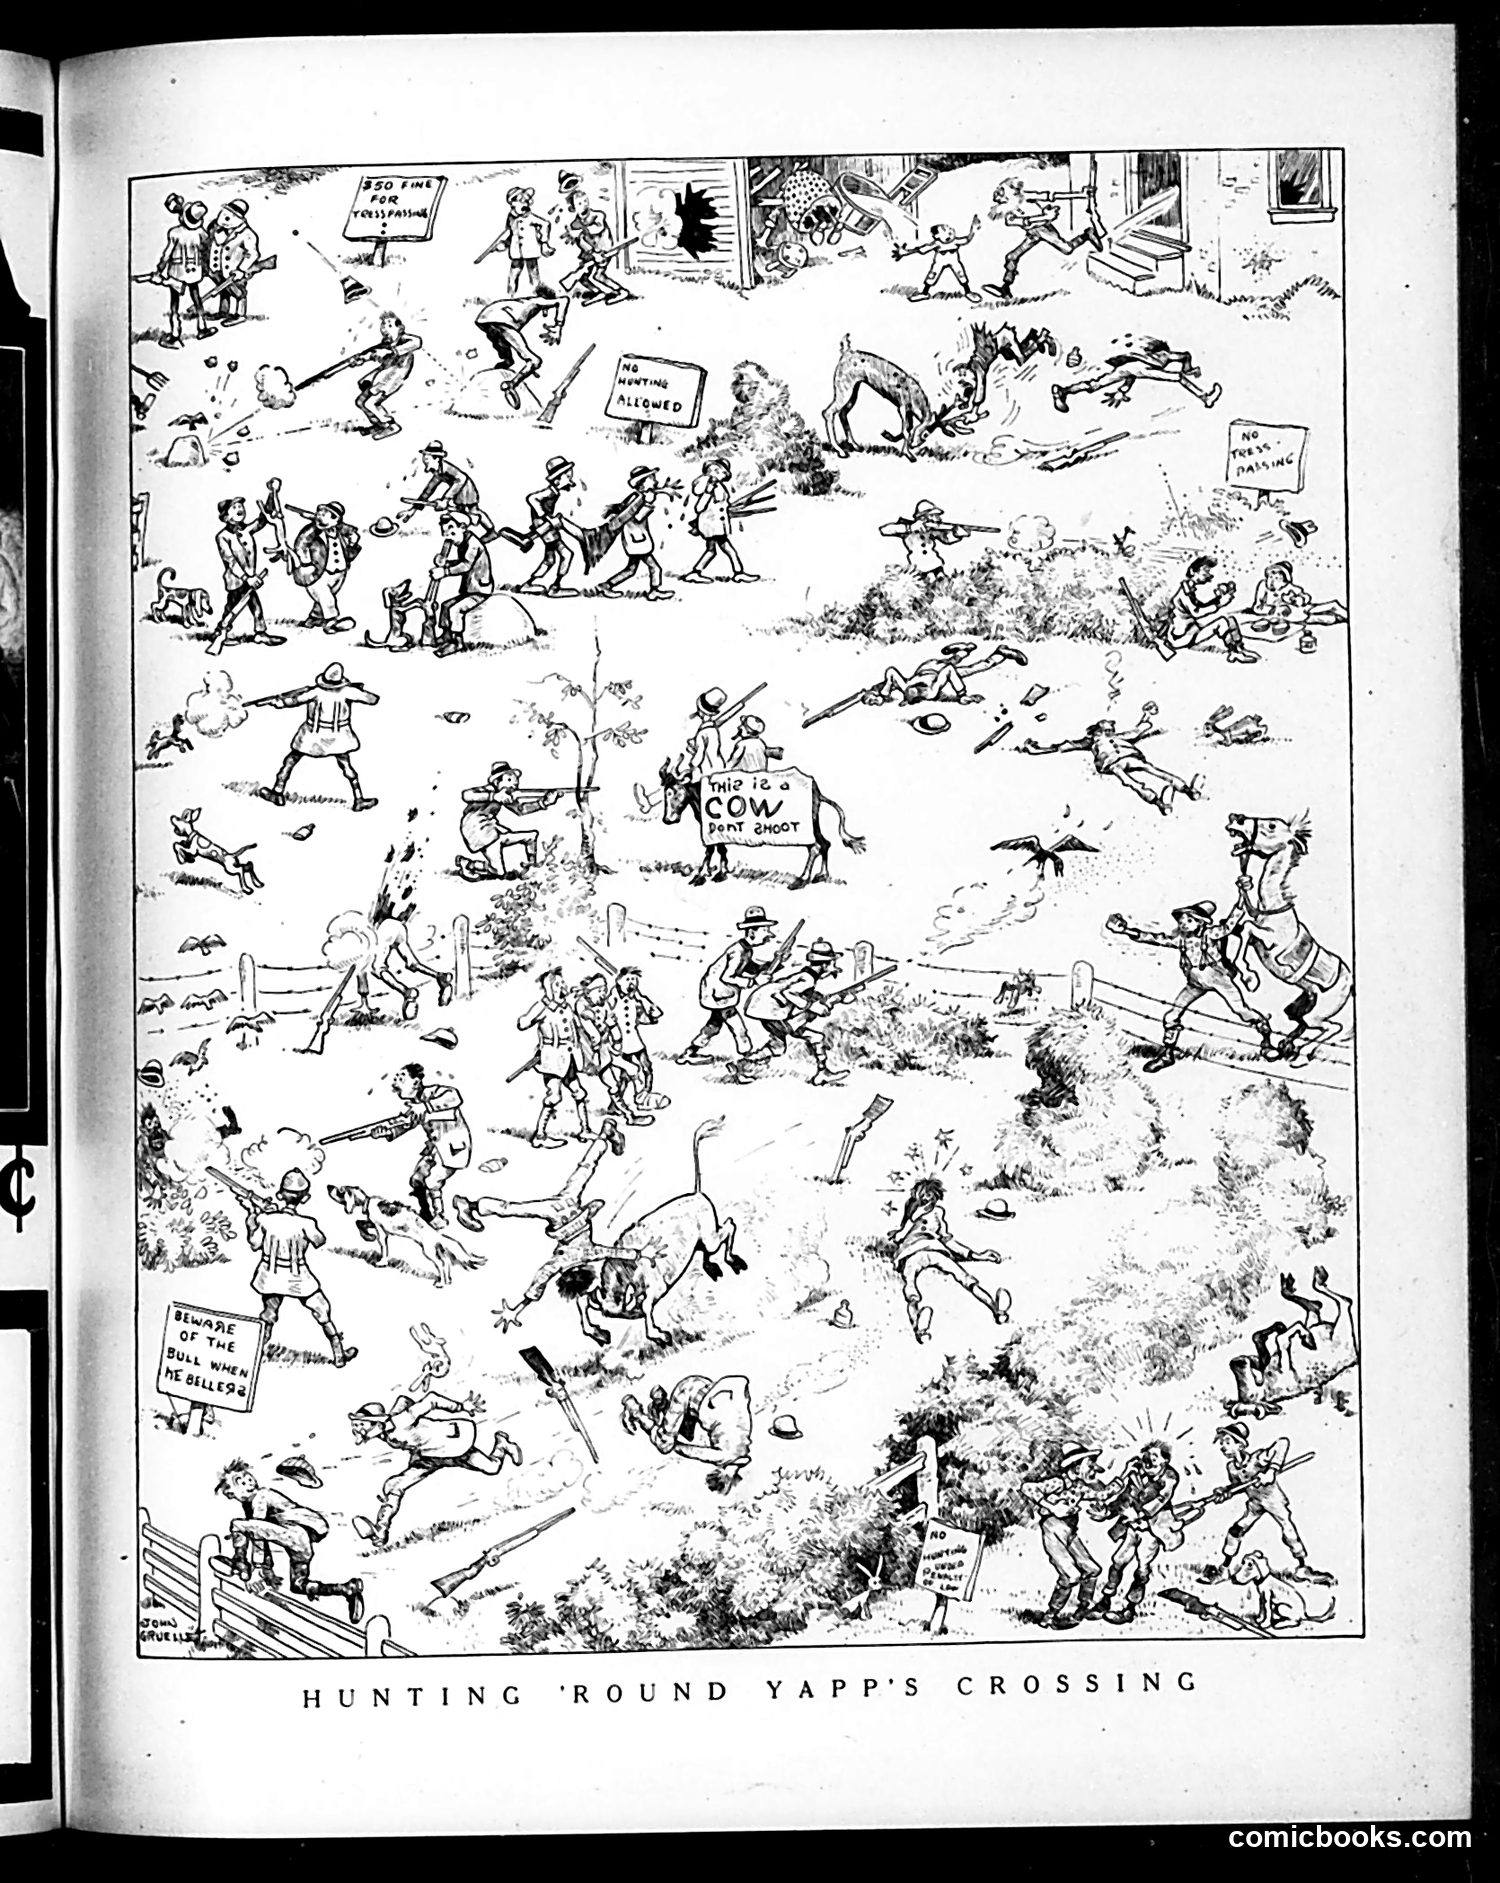 $50 FINE
FOR
TRESSPASSING
NO
HUNTING
ALLOWED
NO
TRESS-
PASSING
THIS IS A
COW
DONT SHOOT
BEWARE
OF THE
BULL WHEN
HE BELLERS
NO
HUNTING
UNDER
PENALTY
OF LAW
JOHN
GRUELLE
HUNTING 'ROUND YAPP'S CROSSING
¢
comicbooks.com